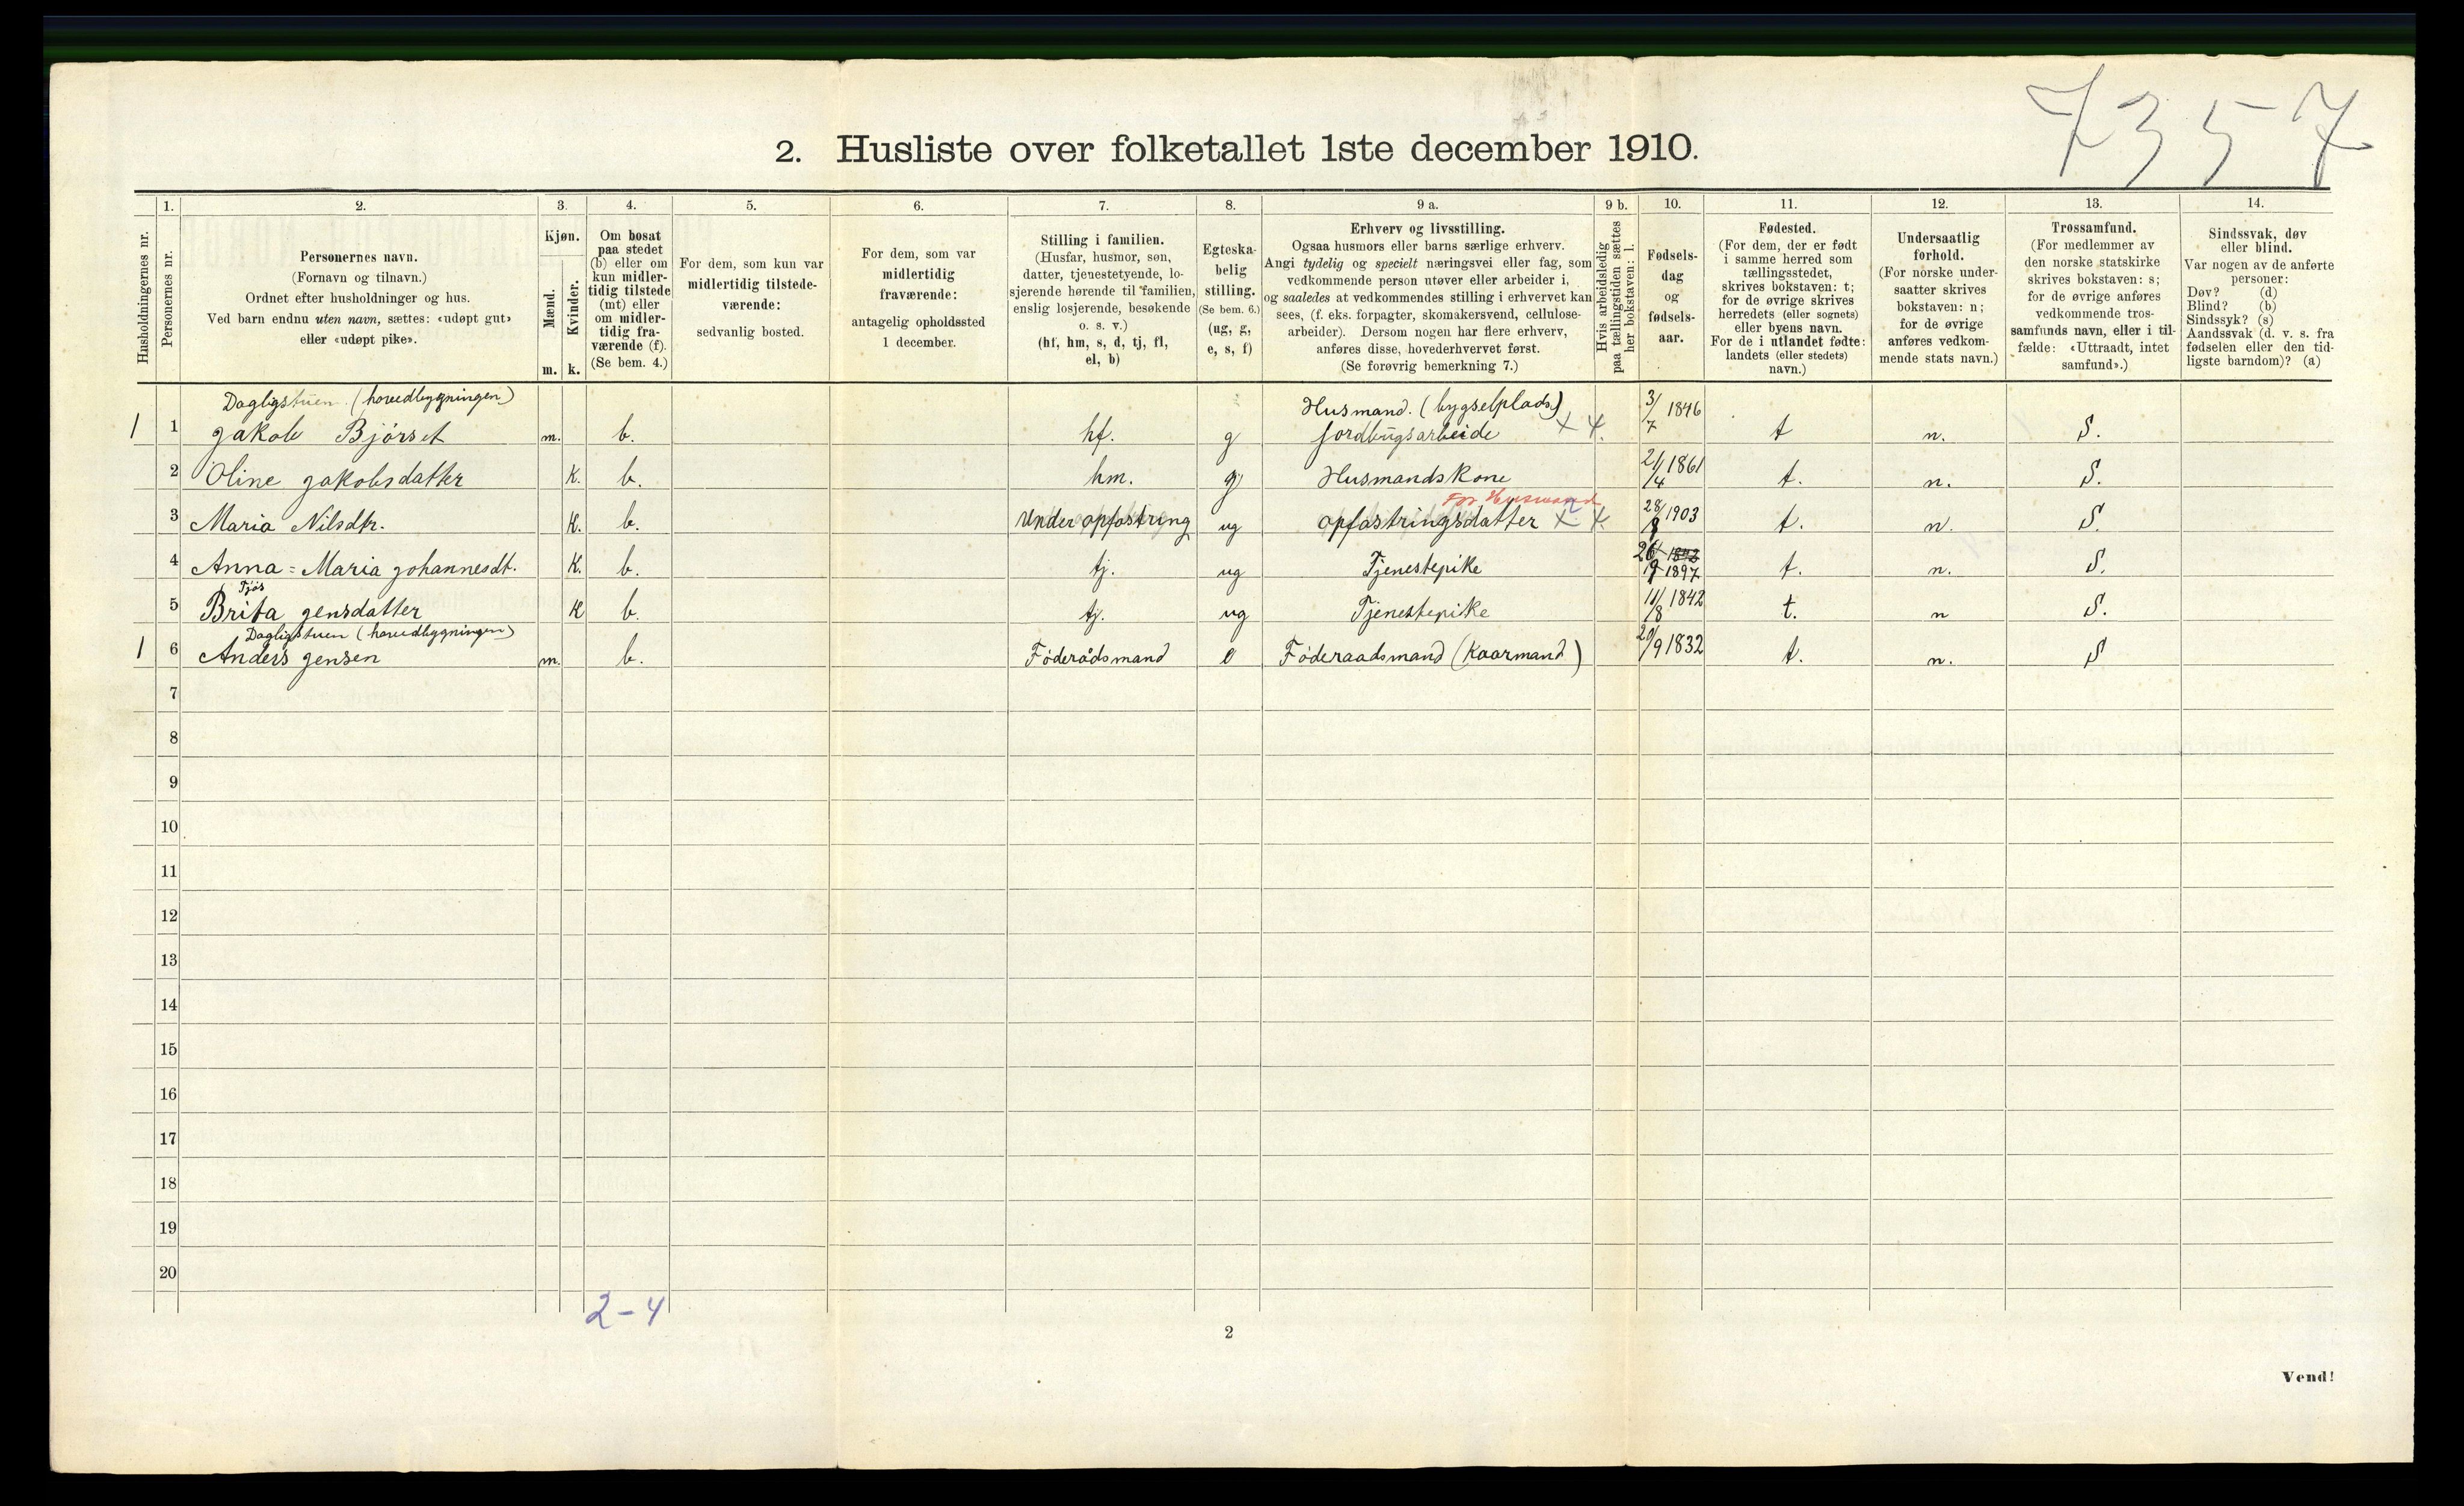 7357
2. Husliste over folketallet 1ste december 1910.
Husholdningernes nr.
1.
Personernes nr.
2.
Personernes navn.
(Fornavn og tilnavn.)
Ordnet efter husholdninger og hus.
Ved barn endnu uten navn, sættes: «udøpt gut»
eller «udøpt pike».
3.
Kjøn.
Mænd.
Kvinder.
m. k.
4.
Om bosat
paa stedet
(b) eller om
kun midler-
tidig tilstede
(mt) eller
om midler-
tidig fra-
værende (f).
(Se bem. 4.)
5.
For dem, som kun var
midlertidig tilstede-
værende:
sedvanlig bosted.
6.
For dem, som var
midlertidig
fraværende:
antagelig opholdssted
1 december.
7.
Stilling i familien.
(Husfar, husmor, søn,
datter, tjenestetyende, lo-
sjerende hørende til familien,
enslig losjerende, besøkende
o. s. v.)
(hf, hm, s, d, tj, fl,
el, b)
8.
Egteska-
belig
stilling.
(Se bem. 6.)
(ug, g,
e, s, f)
9 a.
Erhverv og livsstilling.
Ogsaa husmors eller barns særlige erhverv.
Angi tydelig og specielt næringsvei eller fag, som
vedkommende person utøver eller arbeider i,
og saaledes at vedkommendes stilling i erhvervet kan
sees, (f. eks. forpagter, skomakersvend, cellulose-
arbeider). Dersom nogen har flere erhverv,
anføres disse, hovederhvervet først.
(Se forøvrig bemerkning 7.)
9 b.
Hvis arbeidsledig
paa tællingstiden sættes
her bokstaven: l.
10.
Fødsels-
dag
og
fødsels-
aar.
11.
Fødested.
(For dem, der er født
i samme herred som
tællingsstedet,
skrives bokstaven: t;
for de øvrige skrives
herredets (eller sognets)
eller byens navn.
For de i utlandet fødte:
landets (eller stedets)
navn.)
12.
Undersaatlig
forhold.
(For norske under-
saatter skrives
bokstaven: n;
for de øvrige
anføres vedkom-
mende stats navn.)
13.
Trossamfund.
(For medlemmer av
den norske statskirke
skrives bokstaven: s;
for de øvrige anføres
vedkommende tros-
samfunds navn, eller i til-
fælde: «Uttraadt, intet
samfund».)
14.
Sindssvak, døv
eller blind.
Var nogen av de anførte
personer:
Døv? (d)
Blind? (b)
Sindssyk? (s)
Aandssvak (d. v. s. fra
fødselen eller den tid-
ligste barndom)? (a)
Dagligstuen (hovedbygningen) Husmand. (bygselplads)
1 1 Jakob Bjørset m. b. hf. g Jordbrugsarbeide x 4. 3/7 1846 t n. S.
2 Oline Jakobsdatter K. b. hm. g Husmandskone 21/4 1861 t. n. S.
For Husmand
3 Maria Nilsdtr. K. b. Under opfostring ug opfostringsdatter x 4. 28/8 1903 t. n. S.
4 Anna=Maria Johannesdt. K. b. tj. ug Tjenestepike 1897 t. n. S.
5 Brita Jensdatter K b. tj. ug Tjenestepike 11/8 1842 t. n S.
Dagligstuen (hovedbygningen)
1 6 Anders Jensen m. b. Føderådsmand e Føderaadsmand (Kaarmand) 20/9 1832 t. n. S
7
8
9
10
11
12
13
14
15
16
17
18
19
20
2-4
2
Vend!